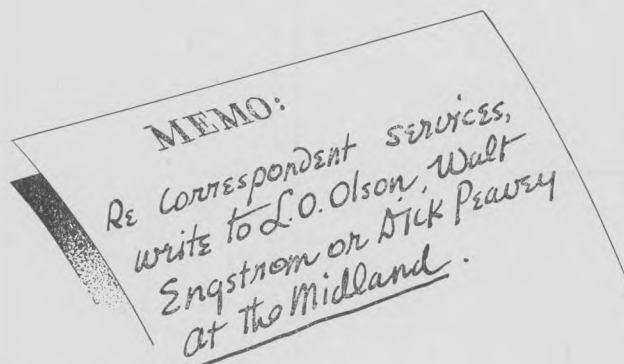 MEMO:
Re Correspondent services,
write to L.O. Olson, Walt
Engstrom or Dick Peavey
at the Midland.